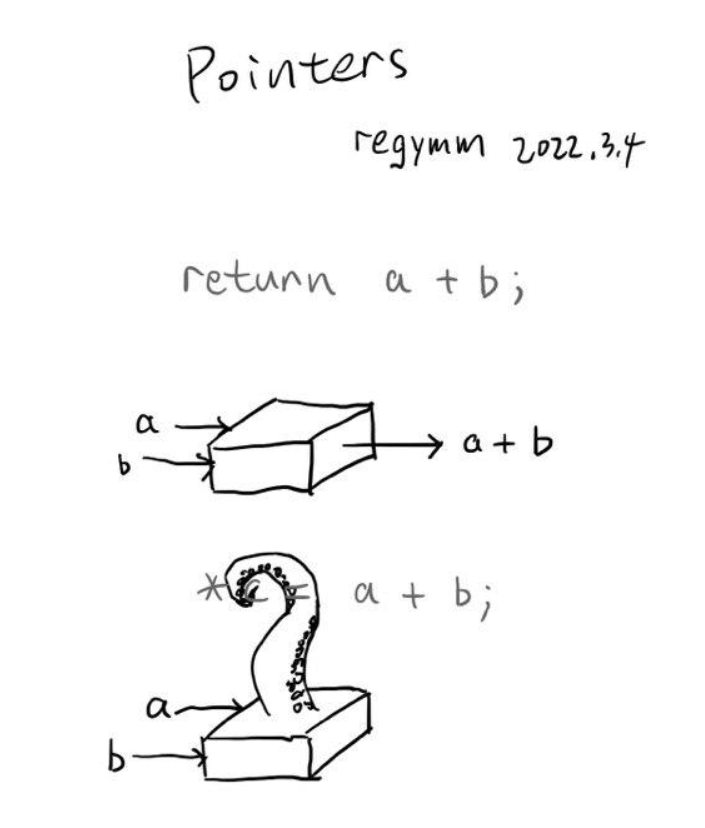 Pointers
regymm 2022.3.4
return a + b;
a
b
a + b
*c = a + b;
a
b